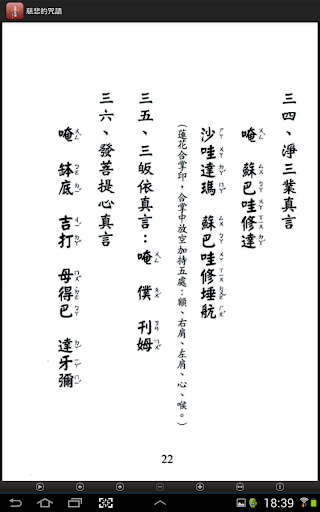 慈悲的咒語
三四、淨三業真言
唵 蘇巴哇修達
沙哇達瑪 蘇巴哇修埵舤
(蓮花合掌印，合掌中放空加持五處：額、右肩、左肩、心、喉。)
三五、三皈依真言：唵 僕 刊姆
三六、發菩提心真言
唵 缽底 吉打 母得巴 達牙彌
22
18:39